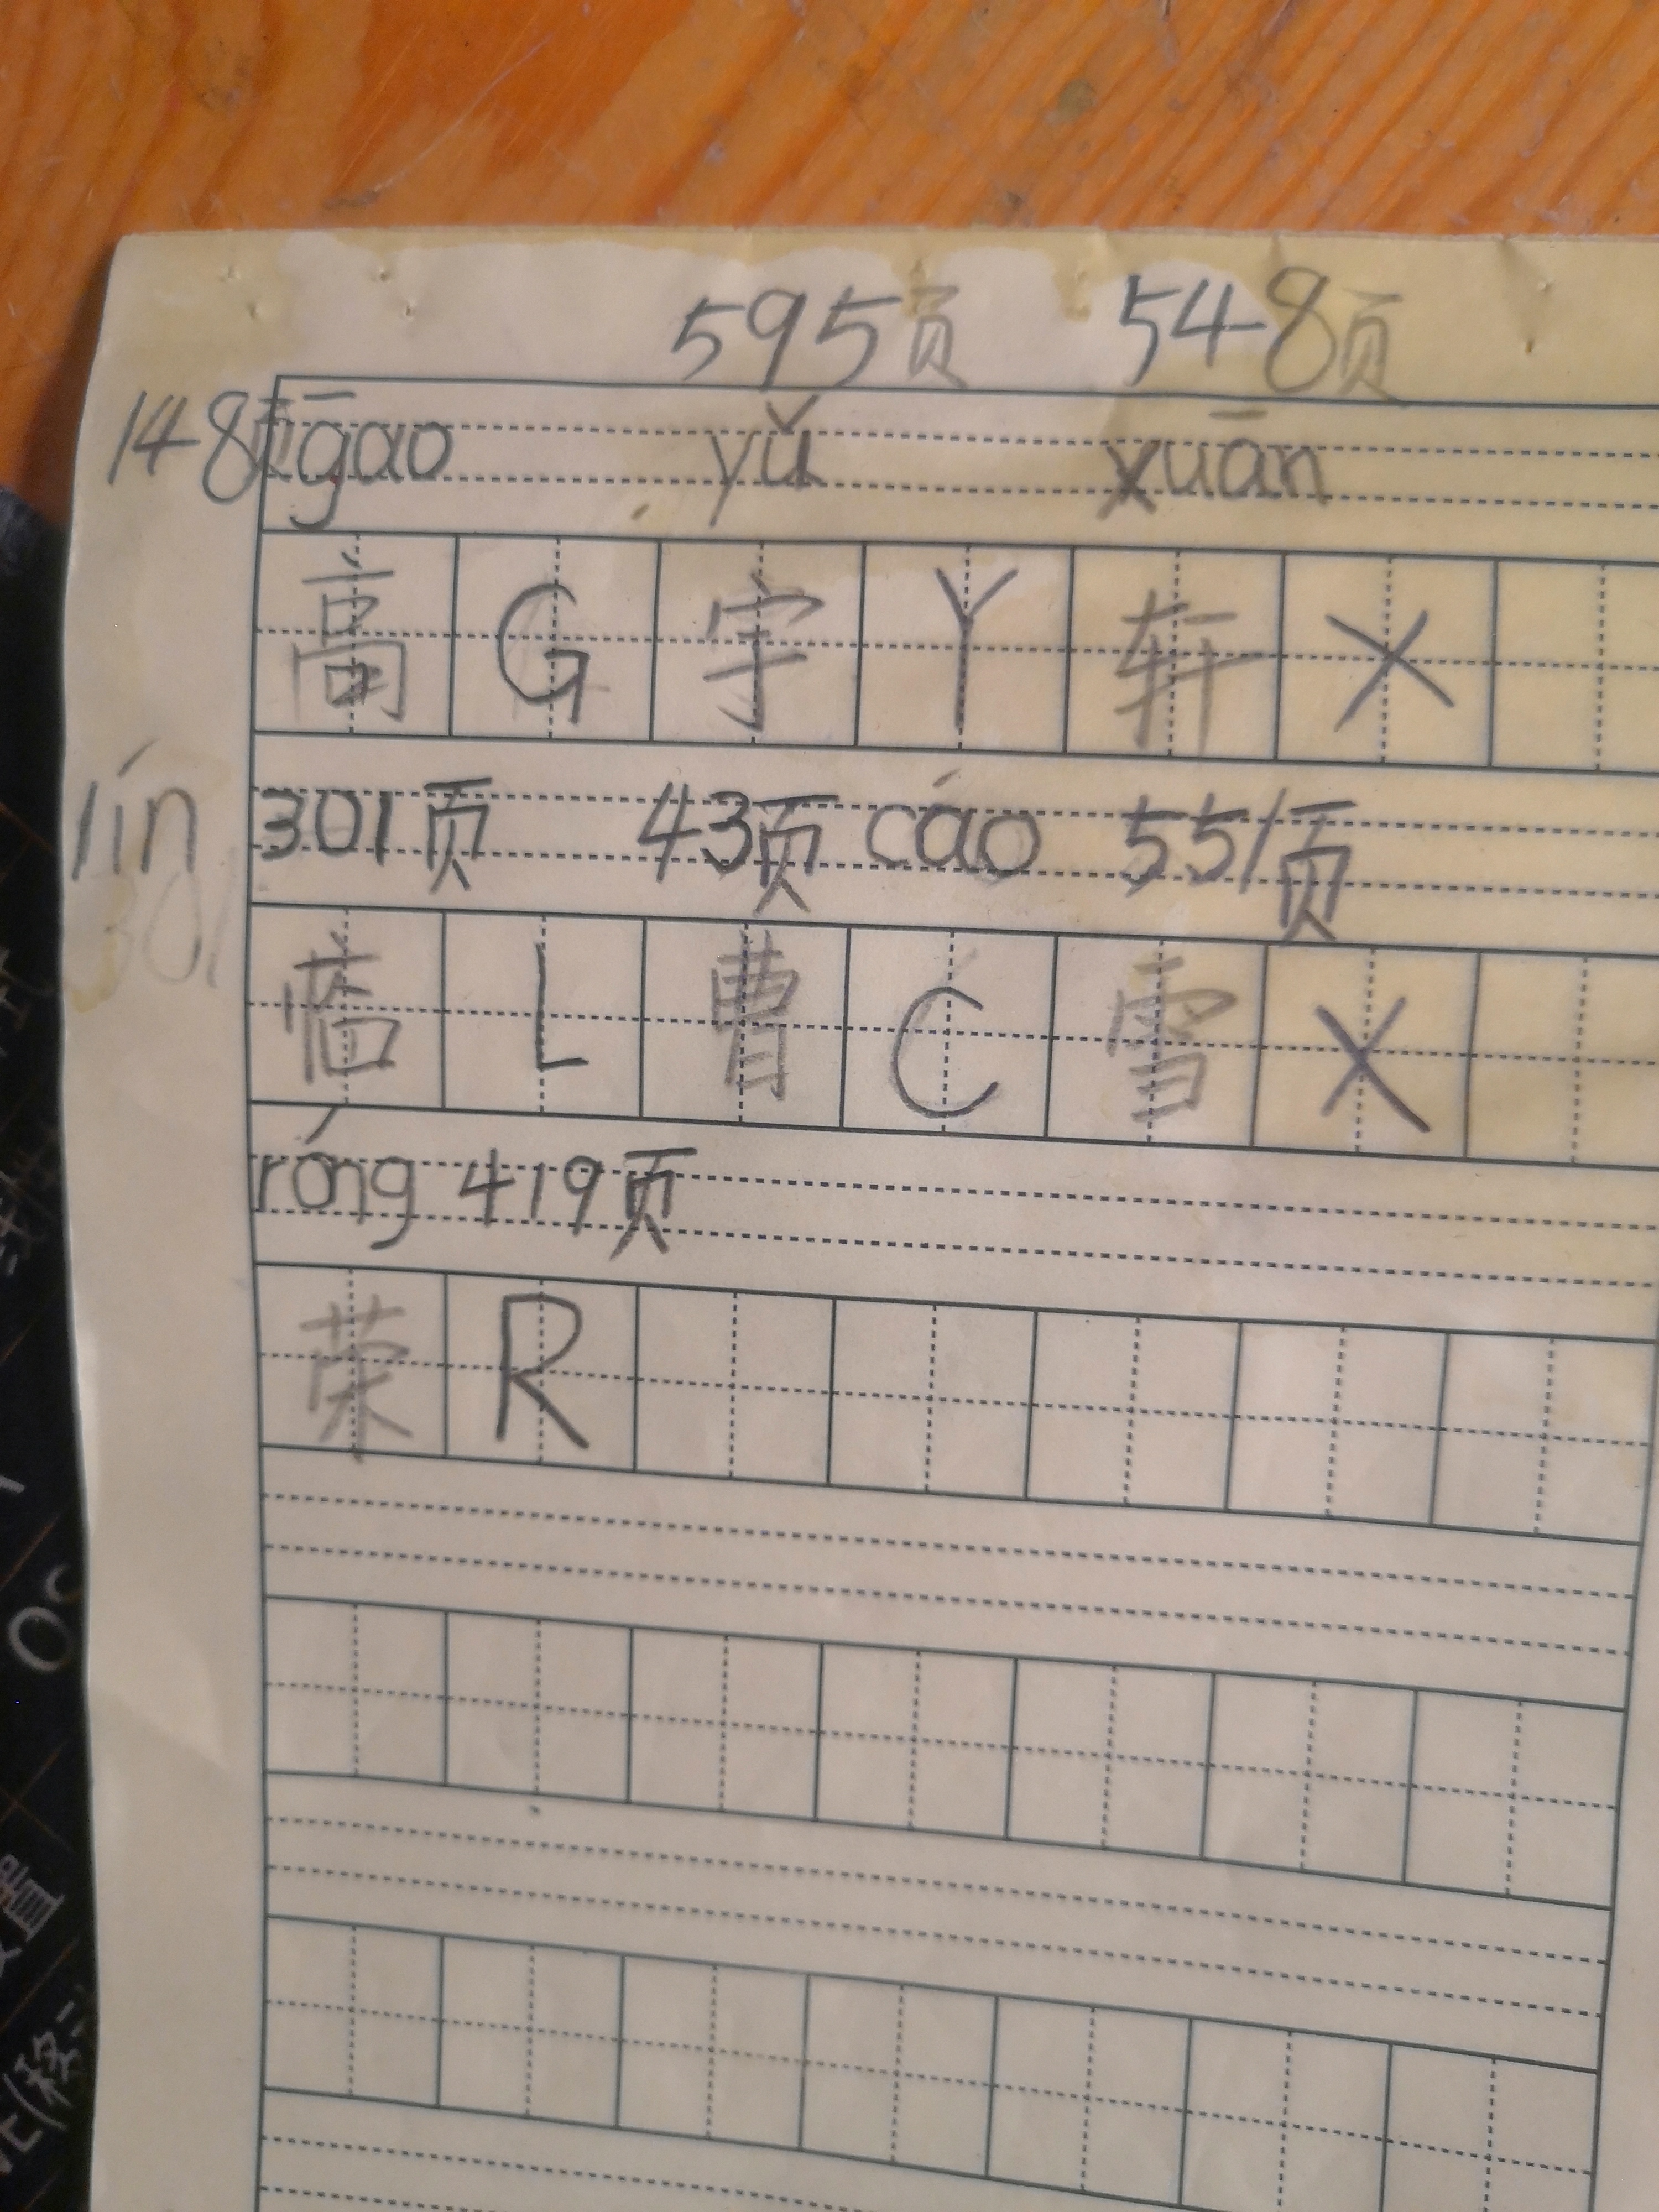 595页 548页
148页 gāo yǔ xuān
高 G 宇 Y 轩 X
lín 301页 43页 cáo 551页
301
临 L 曹 C 雪 X
róng 419页
荣 R